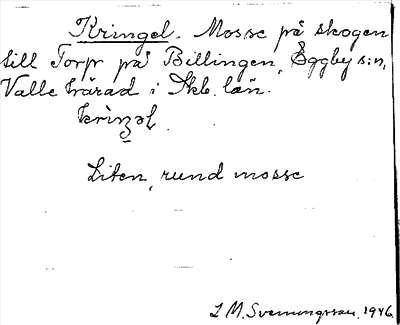 Kringel. Mosse på skogen
till Torp på Billingen, Eggby s:n,
Valle härad i Skb. län.
Liten, rund mosse
J M. Svenningsson. 1946.